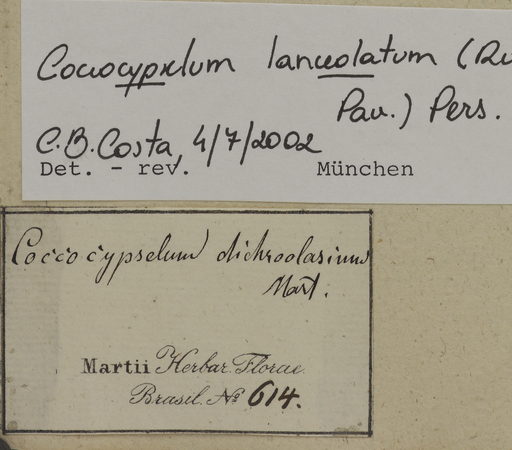 Coccocypselum lanceolatum (Ru
Pav.) Pers.
C.B.Costa, 4/7/2002
Det. - rev. München
Coccocypselum dichroolasium
Mart.
Martii Herbar. Florae
Brasil. No 614.